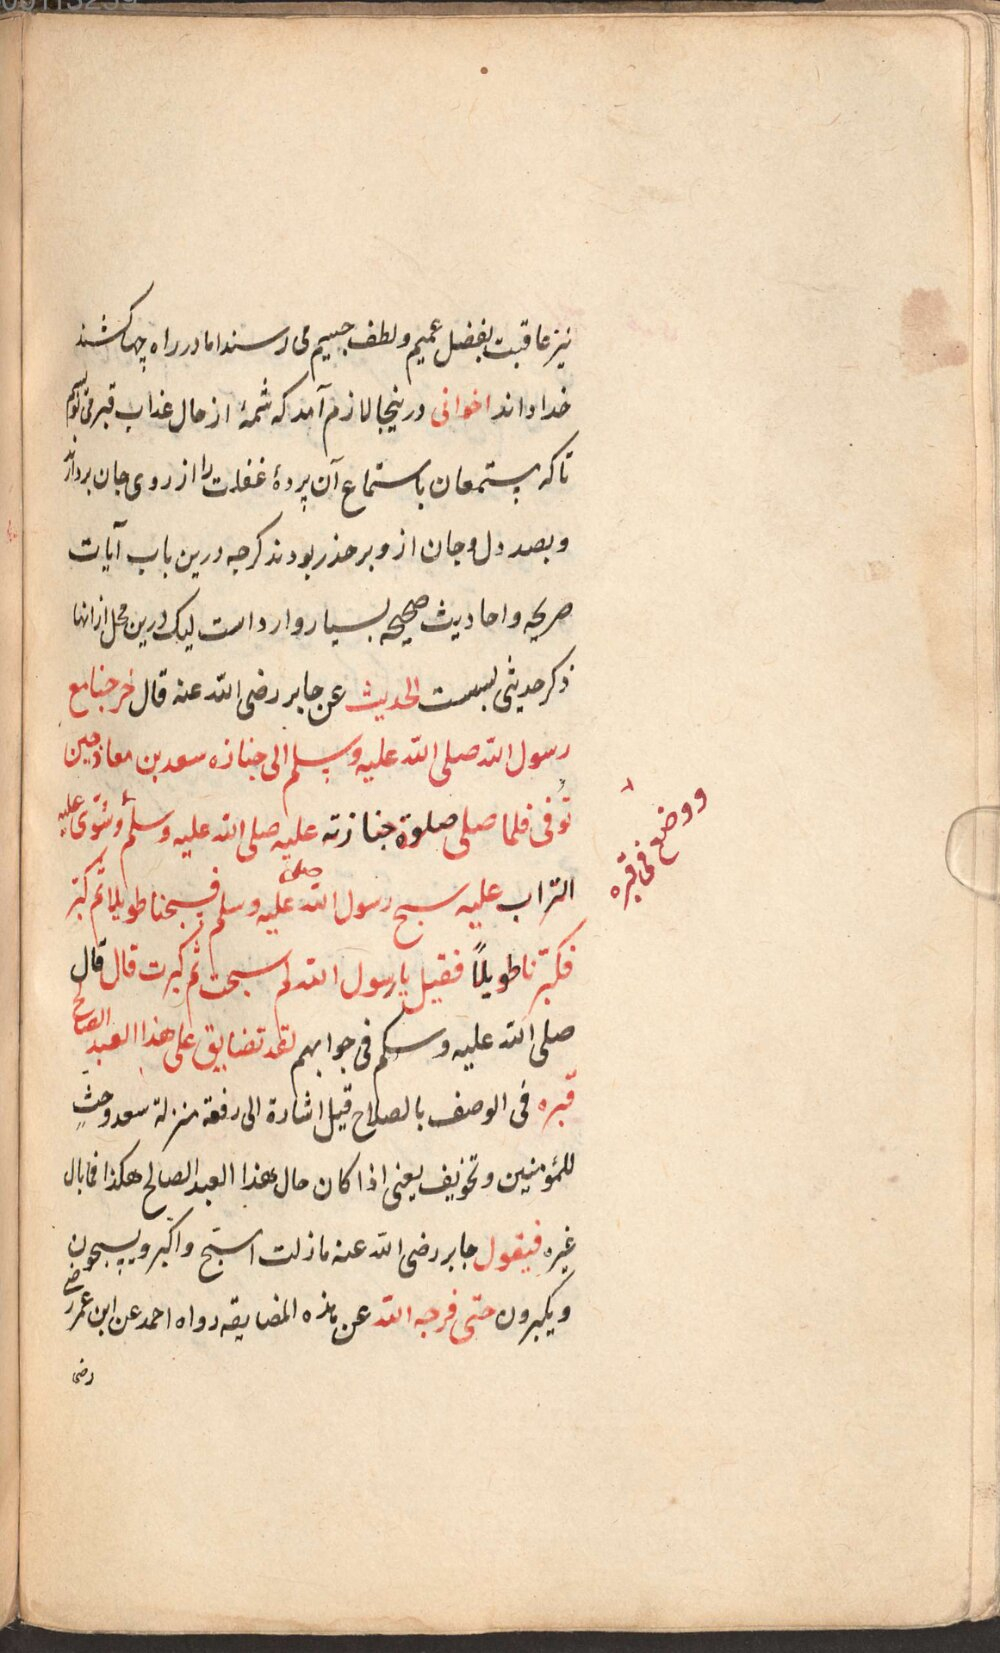 نیز عاقبت بفضل عمیم ولطف جسیم می رسند اما در راه چها کشند
خدا داند اخوانی درینجا لازم آمد که شمهٔ از حال عذاب قبر می نویسم
تا که مستمعان باستماع آن پردهٔ غفلت را از روی جان بردارند
وبصد دل وجان از و بر حذر بودند کرچه درین باب آیات
صریحه واحادیث صحیحه بسیار وارد است لیک درین محل از انها
ذکر حدیثی بسست الحدیث عن جابر رضی الله عنه قال خرجنا مع
رسول الله صلی الله علیه وسلم الی جنازه سعد بن معاذ حین
توفی فلما صلی صلوة جنازته علیه صلی الله علیه وسلم وسُوّی علیه
ووضع فی قبره
التراب علیه سبح رسول الله صلی علیه وسلم فسبحنا طویلا ثم کبّر
فکبّرنا طویلاً فقیل یا رسول الله لم سبحت ثم کبرت قال قال
صلی الله علیه وسلم فی جوابهم لقد تضایق علی هذا العبد الصالح
قبره فی الوصف بالصلاح قیل اشارة الی رفعة منزلة سعد وحثٍ
للمؤمنین وتخویف یعنی اذا کان حال هذا العبد الصالح هکذا فما بال
غیره فیقول جابر رضی الله عنه ما زلت اسبّح واکبر ویسبحون
ویکبرون حتی فرجه الله عن هذه المضایقه رواه احمد عن ابن عمر رضی
رضی